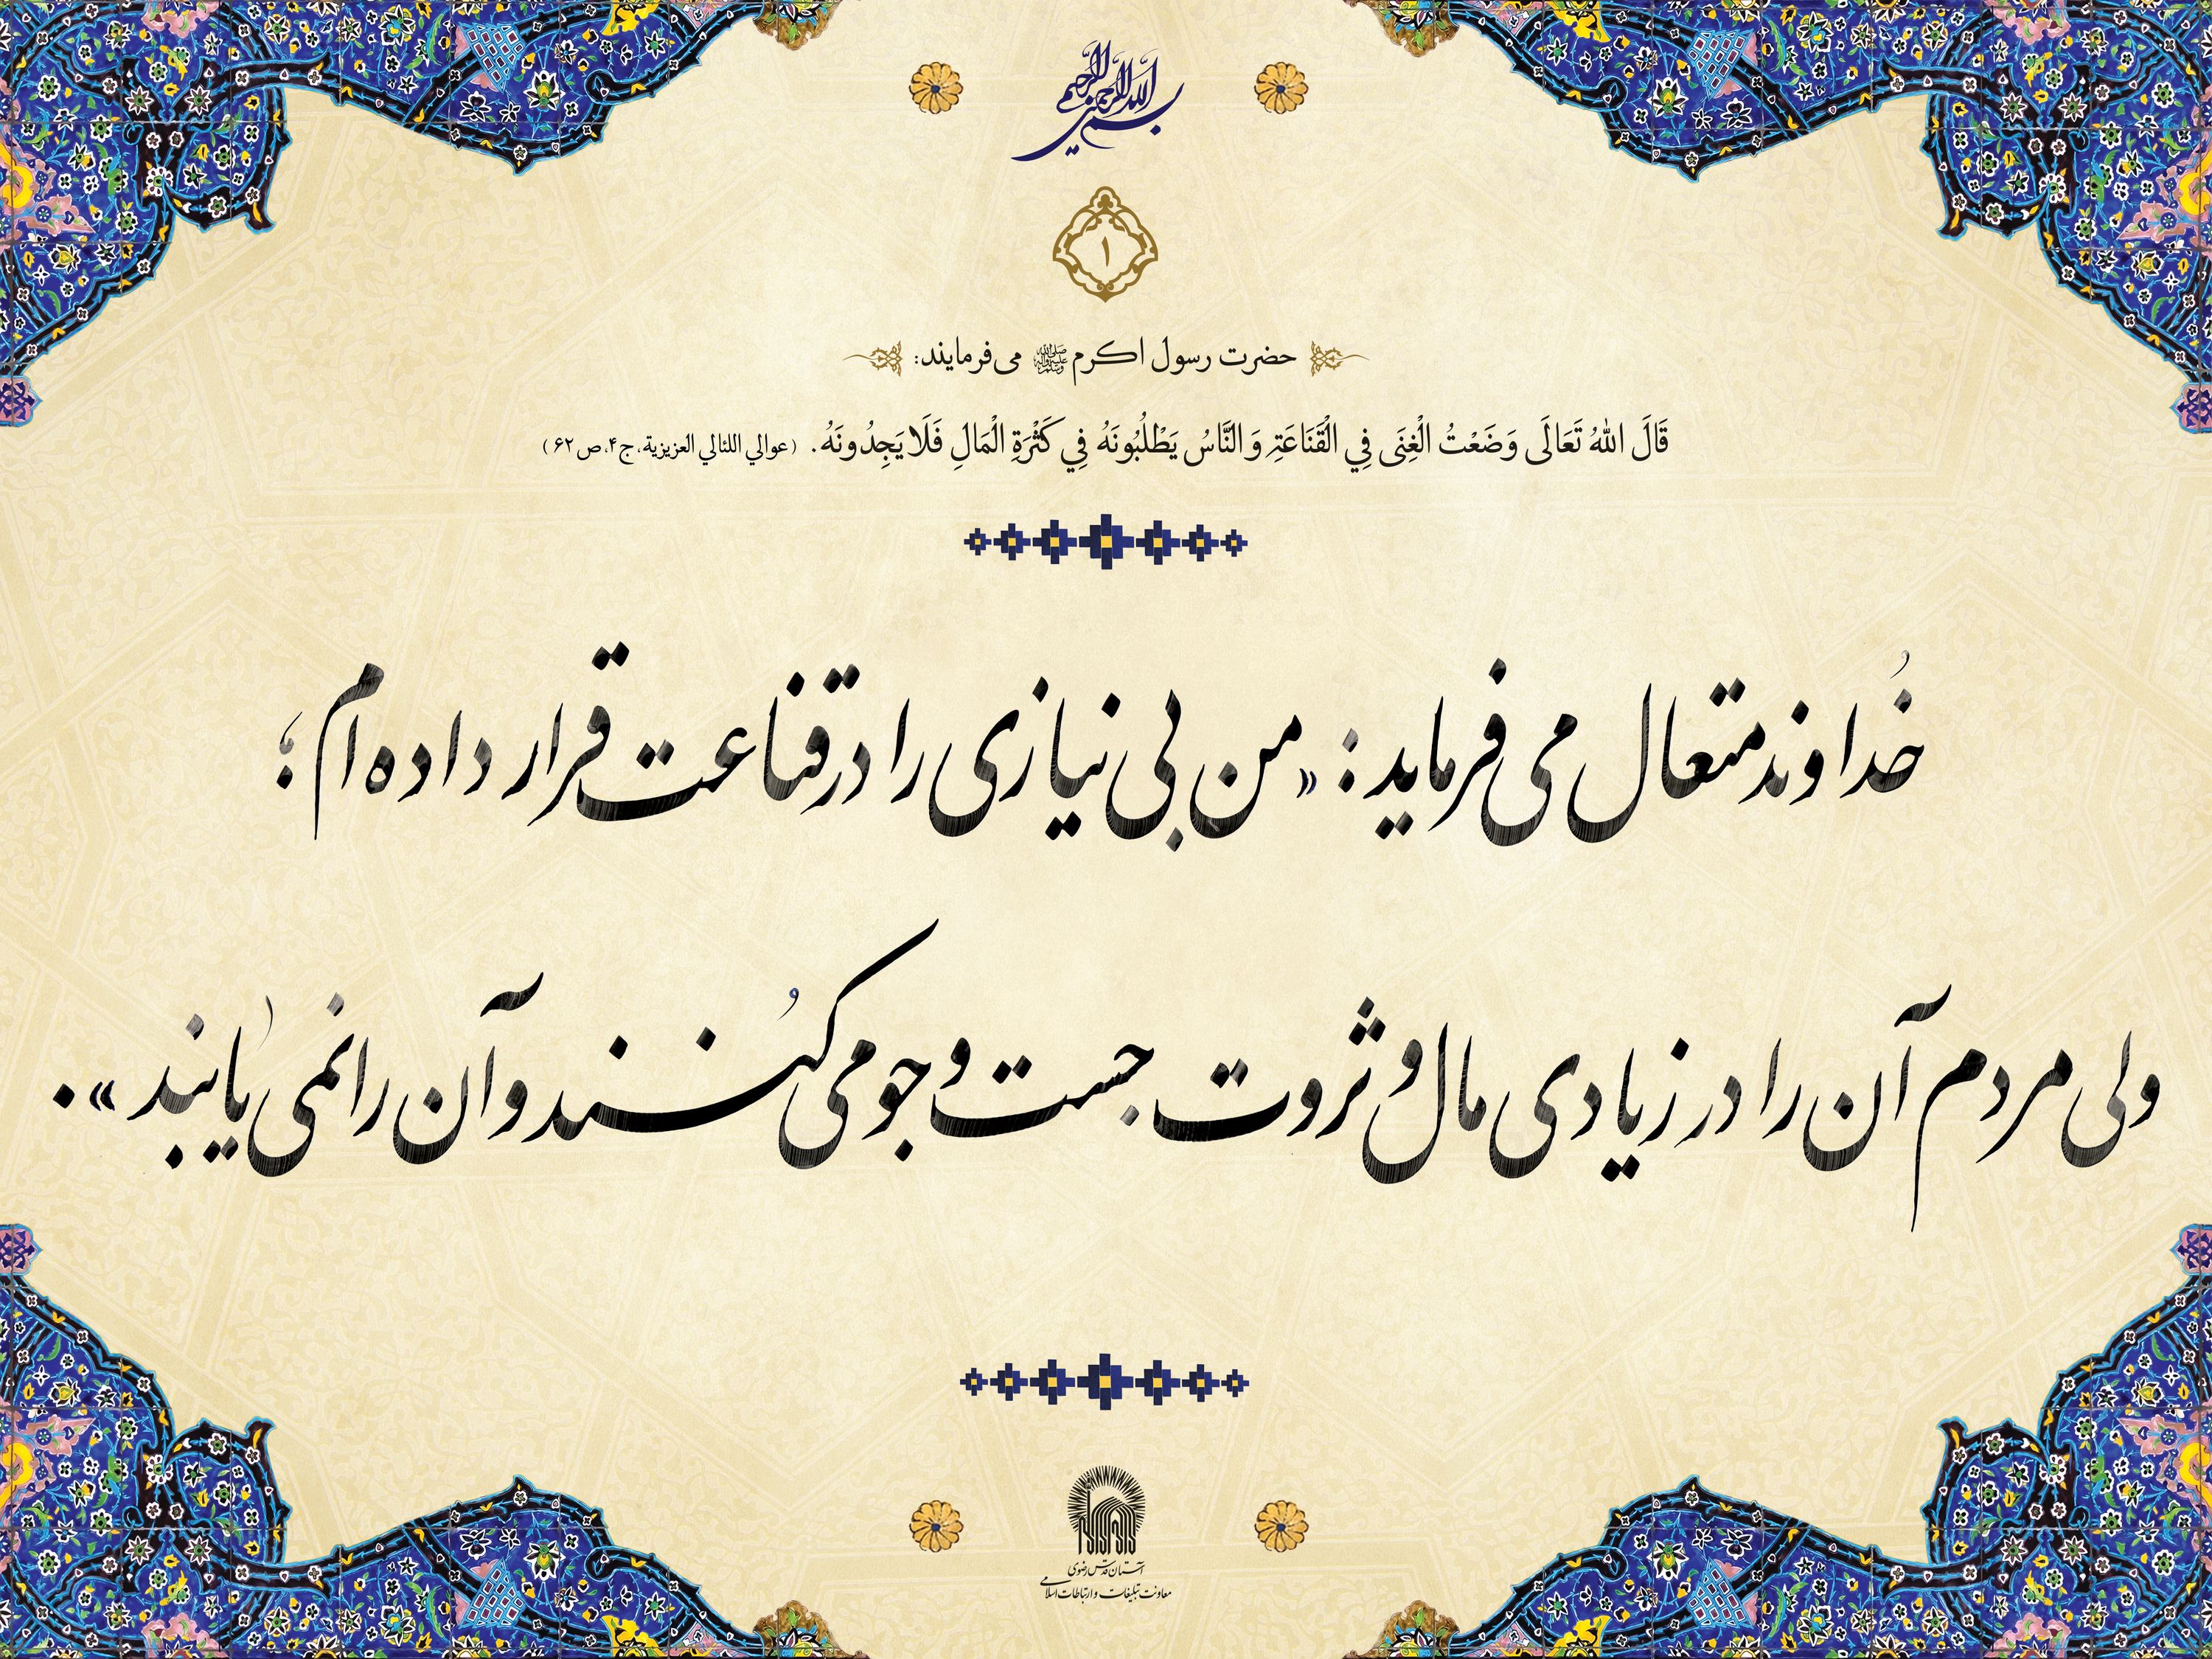 بسم الله الرحمن الرحیم
۱
حضرت رسول اکرم ﷺ می‌فرمایند:
قَالَ اللهُ تَعَالَى وَضَعْتُ الْغِنَى فِي الْقَنَاعَةِ وَ النَّاسُ يَطْلُبُونَهُ فِي كَثْرَةِ الْمَالِ فَلَا يَجِدُونَهُ. (عوالي اللئالي العزيزية، ج۴، ص۶۲)
خُداوند متعال می‌فرماید: «من بی‌نیازی را در قناعت قرار داده‌ام؛
ولی مردم آن را در زیادی مال و ثروت جست و جو می‌کُنند و آن را نمی‌یابند».
آستان قدس رضوی
معاونت تبلیغات و ارتباطات اسلامی